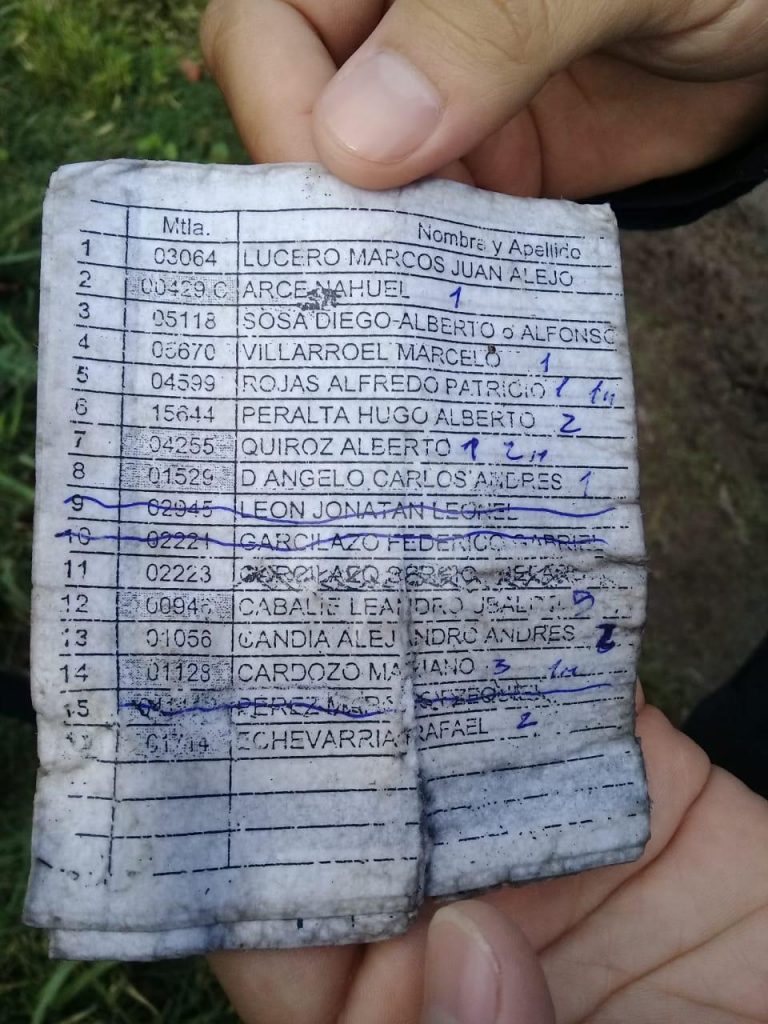 Mtla. Nombre y Apellido
1 03064 LUCERO MARCOS JUAN ALEJO
2 00429 C ARCE NAHUEL 1
3 05118 SOSA DIEGO ALBERTO o ALFONSO
4 05670 VILLARROEL MARCELO 1
5 04599 ROJAS ALFREDO PATRICIO 1 1
6 15644 PERALTA HUGO ALBERTO 2
7 04255 QUIROZ ALBERTO 1 2
8 01529 D ANGELO CARLOS ANDRES 1
9 02945 LEON JONATAN LEONEL
10 02221 GARCILAZO FEDERICO GABRIEL
11 02223
12 CABALIE LEANDRO
13 01056 CANDIA ALEJANDRO ANDRES 2
14 01128 CARDOZO MARIANO 3
15 PEREZ
ECHEVARRIA RAFAEL 2